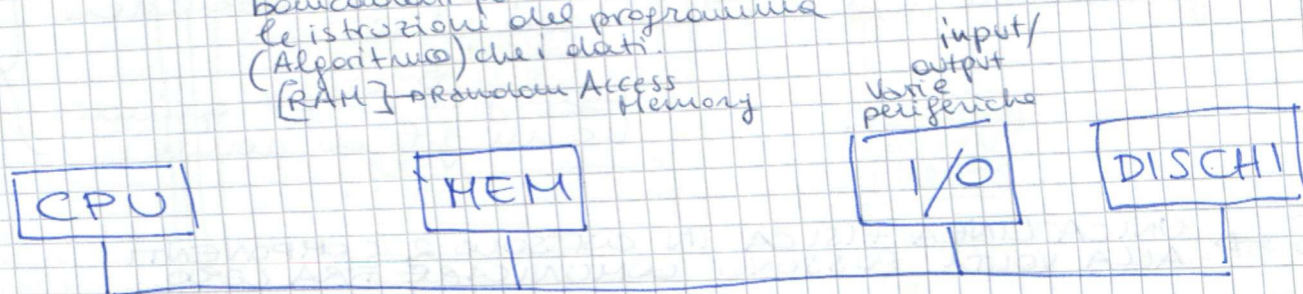 le istruzioni del programma
(Algoritmo) che i dati.
[RAM]→Random Access
Memory
input/
output
varie
periferiche
CPU
MEM
I/O
DISCHI